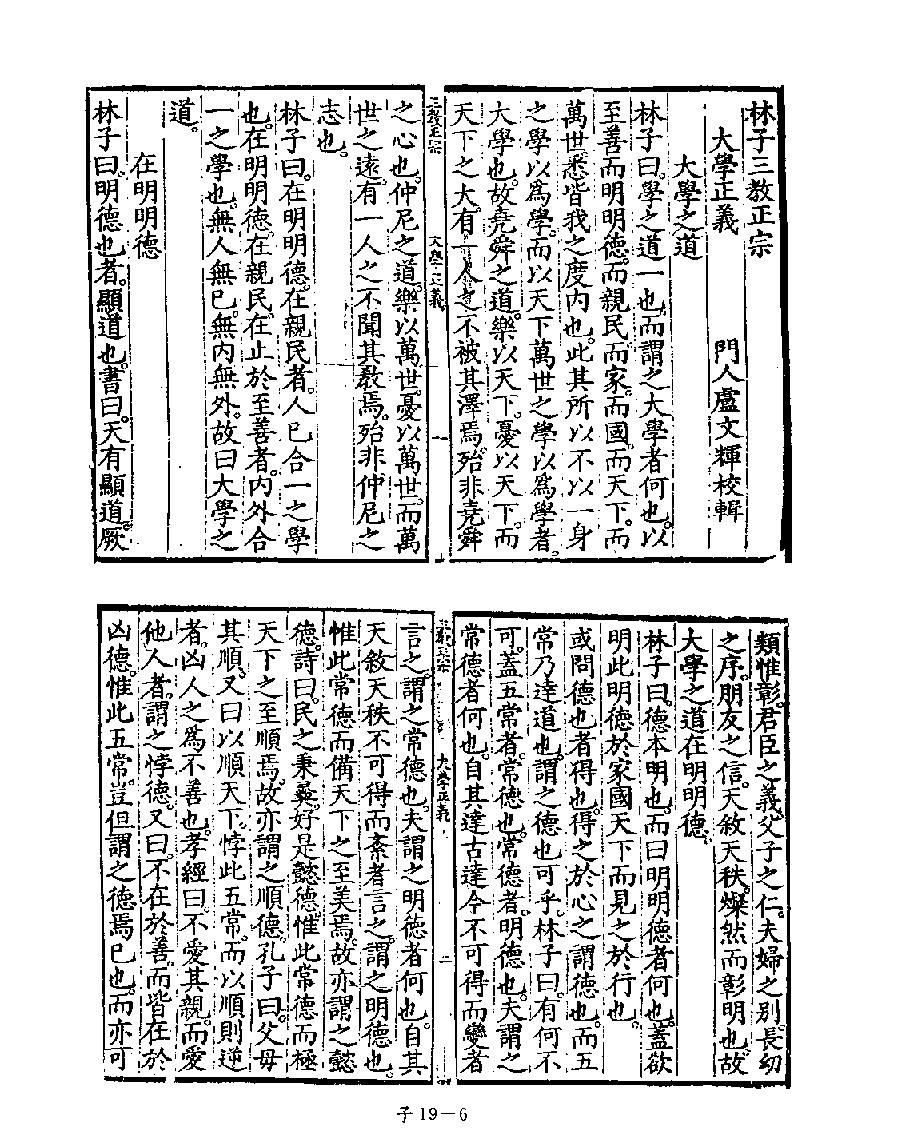 林子三教正宗
大學正義　　　門人盧文輝校輯
大學之道
林子曰。學之道一也。而謂之大學者何也。以
至善而明明德。而親民。而家。而國。而天下。而
萬世。悉皆我之度內也。此其所以不以一身
之學以爲學。而以天下萬世之學以爲學者。
大學也。故堯舜之道。樂以天下。憂以天下。而
天下之大。有一人之不被其澤焉。殆非堯舜
三教正宗　大學正義　一
之心也。仲尼之道。樂以萬世。憂以萬世。而萬
世之遠。有一人之不聞其教焉。殆非仲尼之
志也。
林子曰。在明明德。在親民者。人已合一之學
也。在明明德。在親民。在止於至善者。內外合
一之學也。無人無已。無內無外。故曰大學之
道。
在明明德
林子曰。明德也者。顯道也。書曰。天有顯道。厥
類惟彰。君臣之義。父子之仁。夫婦之別。長幼
之序。朋友之信。天敘天秩。燦然而彰明也。故
大學之道在明明德。
林子曰。德本明也。而曰明明德者何也。蓋欲
明此明德於家國天下而見之於行也。
或問德也者得也。得之於心之謂德也。而五
常乃達道也。謂之德也可乎。林子曰。有何不
可。蓋五常者。常德也。常德者。明德也。夫謂之
常德者何也。自其達古達今不可得而變者
三教正宗　大學正義　二
言之。謂之常德也。夫謂之明德者何也。自其
天敘天秩不可得而紊者言之。謂之明德也。
惟此常德而備天下之至美焉。故亦謂之懿
德。詩曰。民之秉彝。好是懿德。惟此常德而極
天下之至順焉。故亦謂之順德。孔子曰。父母
其順。又曰以順天下。悖此五常。而以順則逆
者。凶人之爲不善也。孝經曰。不愛其親。而愛
他人者。謂之悖德。又曰。不在於善。而皆在於
凶德。惟此五常。豈但謂之德焉已也。而亦可
子19－6